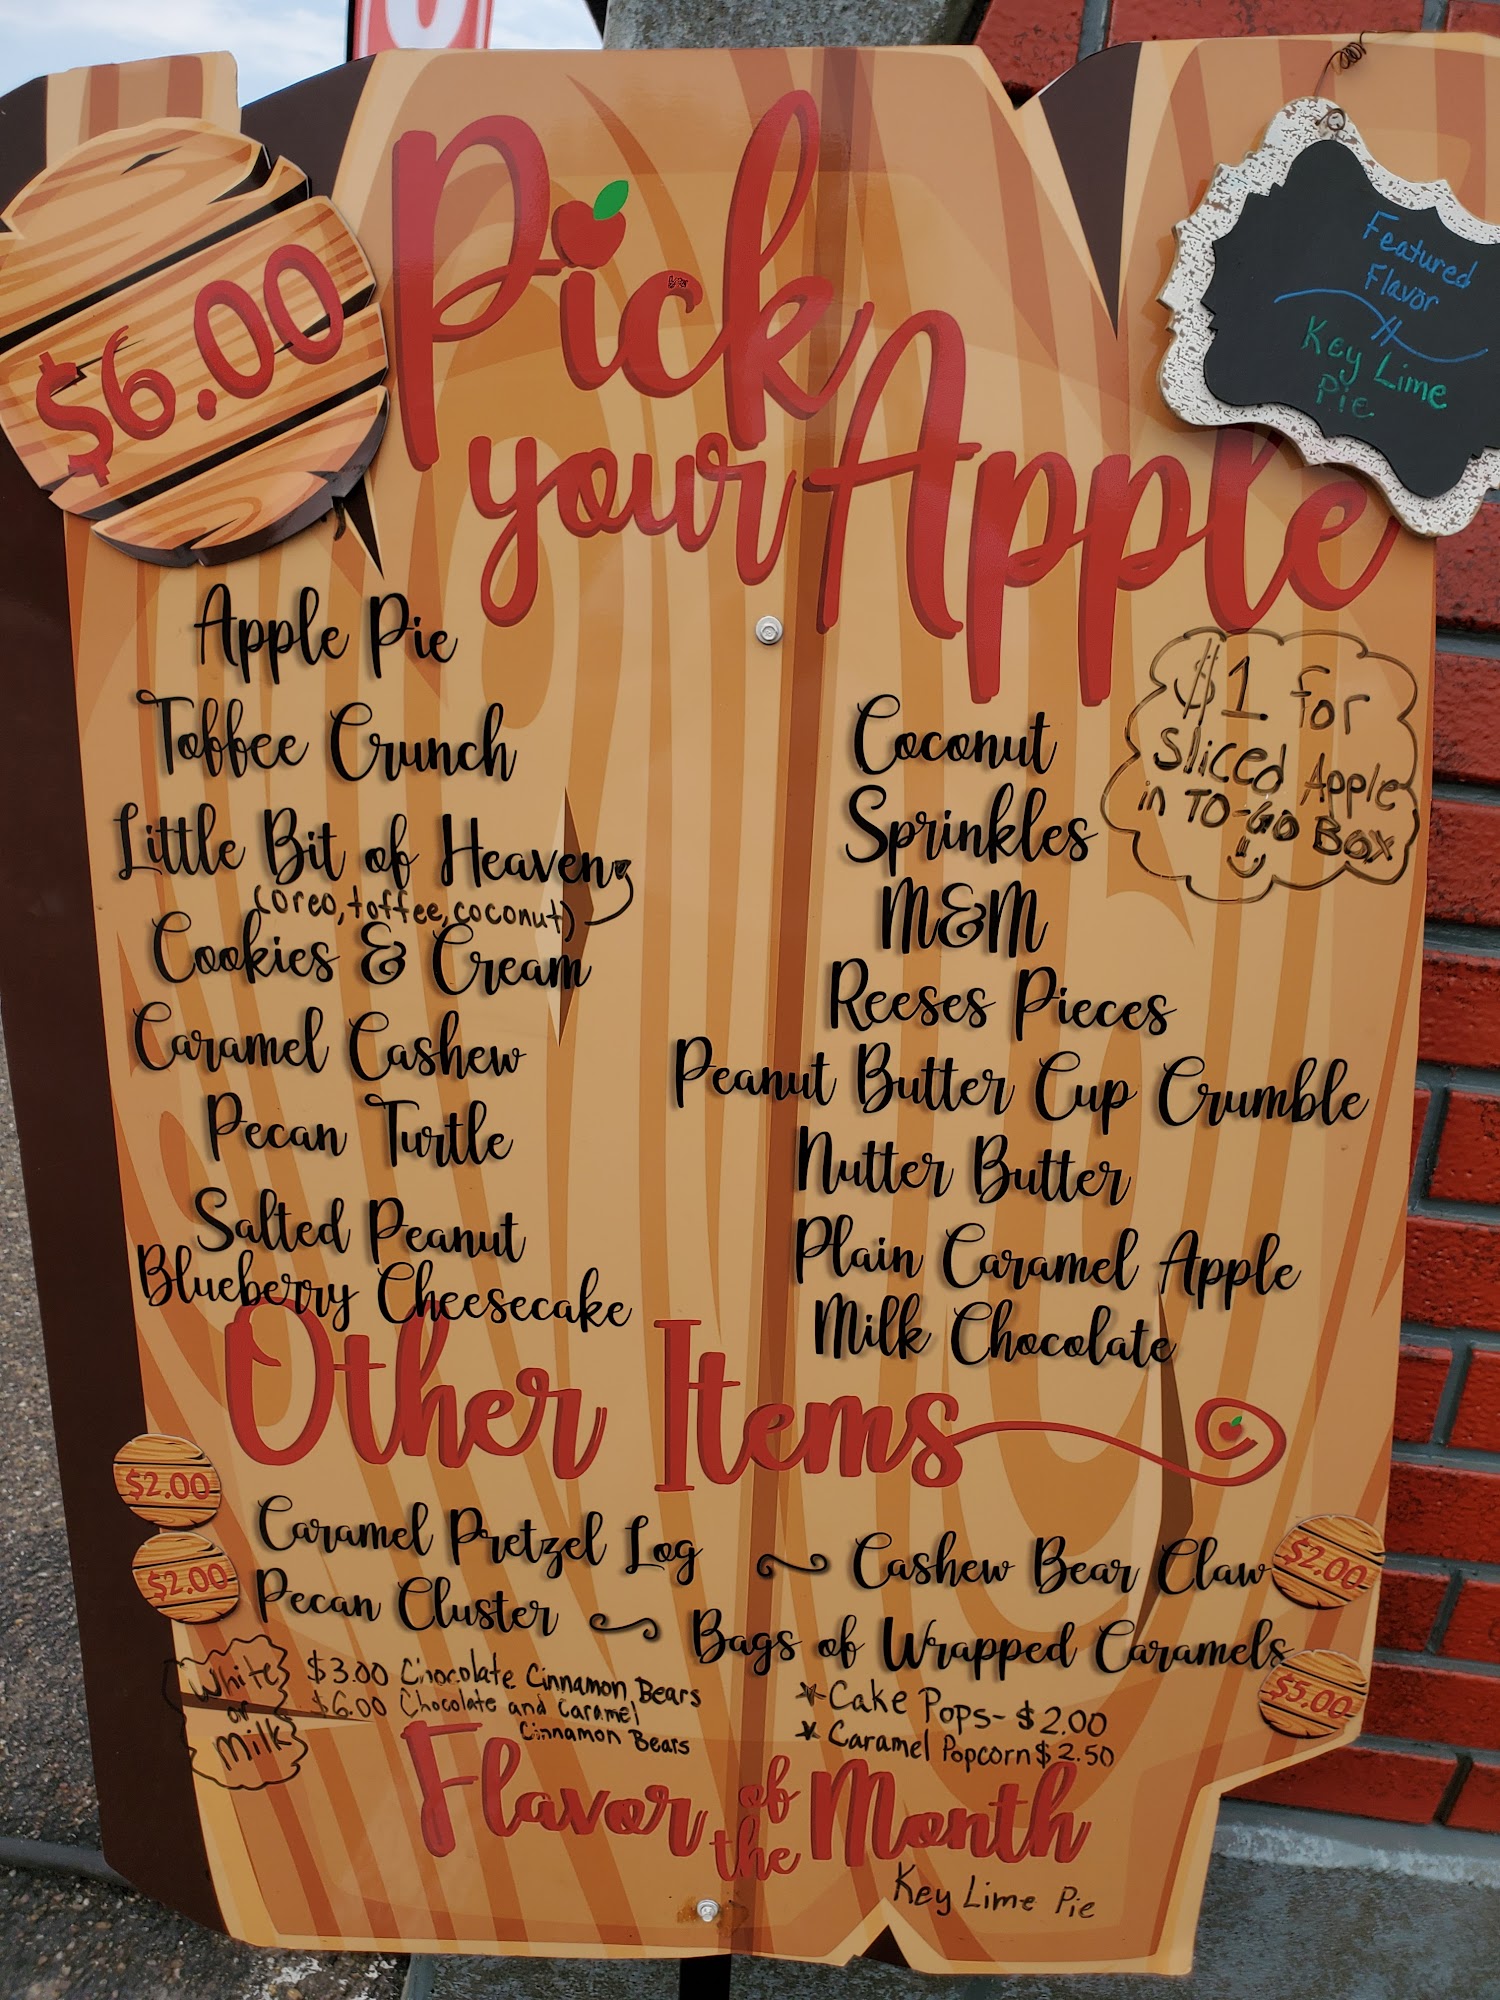 $6.00
Pick
your Apple
Featured
Flavor
Key Lime
Pie
Apple Pie
Toffee Crunch
Little Bit of Heaven
(oreo, toffee, coconut)
Cookies & Cream
Caramel Cashew
Pecan Turtle
Salted Peanut
Blueberry Cheesecake
$1 for
sliced Apple
in TO-GO BOX
Coconut
Sprinkles
M&M
Reeses Pieces
Peanut Butter Cup Crumble
Nutter Butter
Plain Caramel Apple
Milk Chocolate
Other Items
$2.00 Caramel Pretzel Log
Cashew Bear Claw $2.00
$2.00 Pecan Cluster
Bags of Wrapped Caramels $5.00
White
or
Milk
$3.00 Chocolate Cinnamon Bears
$6.00 Chocolate and Caramel
Cinnamon Bears
Cake Pops- $2.00
Caramel Popcorn $2.50
Flavor of the Month
Key Lime Pie